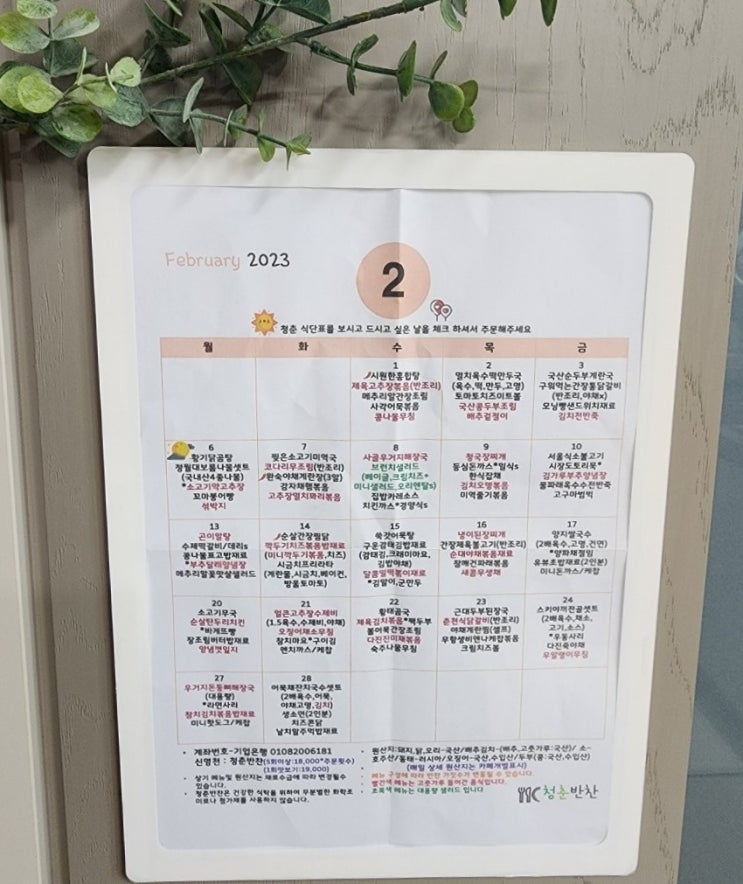 February 2023
2
청춘 식단표를 보시고 드시고 싶은 날을 체크 하셔서 주문해주세요
월 화 수 목 금
1
시원한홍합탕
제육고추장볶음(반조리)
메추리알간장조림
사각어묵볶음
콩나물무침
2
멸치육수떡만두국
(육수,떡,만두,고명)
토마토치즈미트볼
국산콩두부조림
배추겉절이
3
국산순두부계란국
구워먹는간장통닭갈비
(반조리,야채x)
모닝빵샌드위치재료
김치전반죽
6
황기닭곰탕
정월대보름나물셋트
(국내산4종나물)
*소고기약고추장
꼬마붕어빵
섞박지
7
찢은소고기미역국
코다리무조림(반조리)
완숙야채계란장(3알)
감자채햄볶음
고추장멸치꽈리볶음
8
사골우거지해장국
브런치샐러드
(베이글,크림치즈*
미니샐러드,오리엔탈s)
집밥카레소스
치킨까스*경양식s
9
청국장찌개
등심돈까스*일식s
한식잡채
김치오뎅볶음
미역줄기볶음
10
서울식소불고기
시장도토리묵*
김가루부추양념장
물파래옥수수전반죽
고구마범벅
13
곤이알탕
수제떡갈비/데리s
콩나물표고밥재료
*부추달래양념장
메추리알꽃맛살샐러드
14
순살간장찜닭
깍두기치즈볶음밥재료
(미니깍두기볶음,치즈)
시금치프리타타
(계란물,시금치,베이컨,
방울토마토)
15
쑥갓어묵탕
구운감태김밥재료
(감태김,크래미마요,
김밥야채)
달콤밀떡볶이재료
*김말이,군만두
16
냉이된장찌개
간장제육불고기(반조리)
순대야채볶음재료
참깨건파래볶음
새콤무생채
17
양지쌀국수
(2배육수,고명,건면)
*양파채절임
유뷰초밥재료(2인분)
미니돈까스/케찹
20
소고기무국
순살탄두리치킨
*바게트빵
장조림버터밥재료
양념깻잎지
21
얼큰고추장수제비
(1.5육수,수제비,야채)
오징어채소무침
참치마요*구이김
멘치까스/케찹
22
황태곰국
제육김치볶음*팩두부
볼어묵간장조림
다진진미채볶음
숙주나물무침
23
근대두부된장국
춘천식닭갈비(반조리)
야채계란찜(셀프)
무항생비엔나케찹볶음
크림치즈볼
24
스키야끼전골셋트
(2배육수,채소,
고기,소스)
*우동사리
다진쑥야채
우엉명이무침
27
우거지돈등뼈해장국
(대용량)
*라면사리
참치김치볶음밥재료
미니핫도그/케찹
28
어묵채잔치국수셋트
(2배육수,어묵,
야채고명,김치)
생소면(2인분)
치즈콘닭
날치알주먹밥재료
계좌번호-기업은행 01082006181
신영천 : 청춘반찬(5회이상:18,000*주문횟수)
(1회맛보기:19,000)
상기 메뉴및 원산지는 재료수급에 따라 변경될수
있습니다.
청춘반찬은 건강한 식탁을 위하여 무분별한 화학조
미료나 첨가제를 사용하지 않습니다.
원산지:돼지,닭,오리-국산/배추김치-(배추,고춧가루:국산)/ 소-
호주산/동태-러시아/오징어-국산,수입산/두부(콩:국산,수입산)
(매일 상세 원산지는 카페개별표시)
메뉴 구성에 따라 반찬 가짓수가 변동될 수 있습니다.
빨간색 메뉴는 고춧가루 들어간 음식입니다.
초록색 메뉴는 대용량 샐러드 입니다
청춘반찬